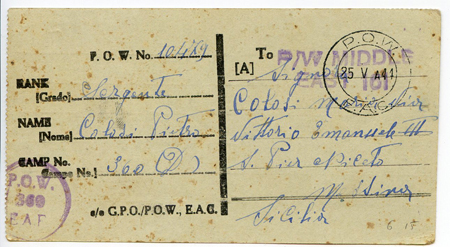 P. O. W. No. 10/189
RANK
[Grado] Sergente
NAME
[Nome] Colosi Pietro
CAMP No.
Campo No. 360 (D)
c/o G.P.O./P.O.W., E.A.C.
P.O.W.
360
E A F
To
[A]
P/W MIDDLE
EAST 101
P.O.W.
25 V A41
E.A.C.
Signora
Colosi Maria
Vittorio Emanuele III
S. Pier Niceto
Messina
Sicilia
6 17